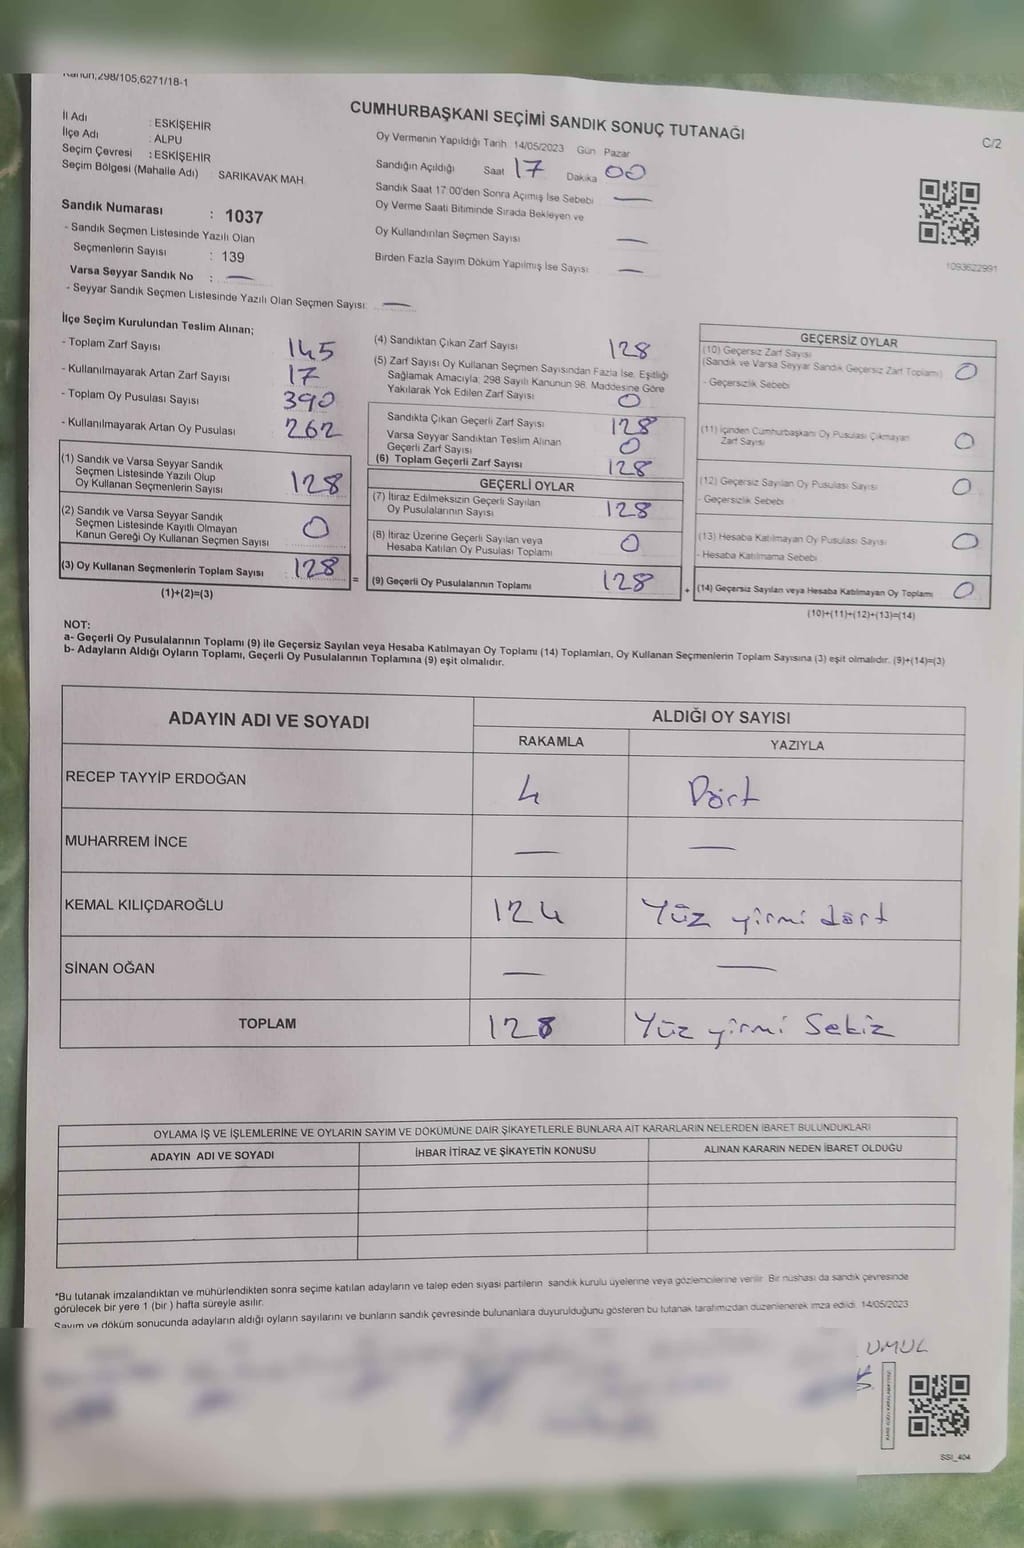 Kanun,298/105,6271/18-1
CUMHURBAŞKANI SEÇİMİ SANDIK SONUÇ TUTANAĞI
C/2
İl Adı : ESKİŞEHİR
İlçe Adı : ALPU
Seçim Çevresi : ESKİŞEHİR
Seçim Bölgesi (Mahalle Adı) : SARIKAVAK MAH.
Oy Vermenin Yapıldığı Tarih 14/05/2023 Gün Pazar
Sandığın Açıldığı Saat 17 Dakika 00
Sandık Saat 17:00'den Sonra Açımış İse Sebebi —
Oy Verme Saati Bitiminde Sırada Bekleyen ve
Oy Kullandırılan Seçmen Sayısı —
Birden Fazla Sayım Döküm Yapılmış İse Sayısı —
1093622991
Sandık Numarası : 1037
- Sandık Seçmen Listesinde Yazılı Olan
Seçmenlerin Sayısı : 139
Varsa Seyyar Sandık No : —
- Seyyar Sandık Seçmen Listesinde Yazılı Olan Seçmen Sayısı: —
İlçe Seçim Kurulundan Teslim Alınan;
- Toplam Zarf Sayısı 145
- Kullanılmayarak Artan Zarf Sayısı 17
- Toplam Oy Pusulası Sayısı 390
- Kullanılmayarak Artan Oy Pusulası 262
(1) Sandık ve Varsa Seyyar Sandık
Seçmen Listesinde Yazılı Olup
Oy Kullanan Seçmenlerin Sayısı 128
(2) Sandık ve Varsa Seyyar Sandık
Seçmen Listesinde Kayıtlı Olmayan
Kanun Gereği Oy Kullanan Seçmen Sayısı 0
(3) Oy Kullanan Seçmenlerin Toplam Sayısı 128 =
(1)+(2)=(3)
(4) Sandıktan Çıkan Zarf Sayısı 128
(5) Zarf Sayısı Oy Kullanan Seçmen Sayısından Fazla İse, Eşitliği
Sağlamak Amacıyla, 298 Sayılı Kanunun 98. Maddesine Göre
Yakılarak Yok Edilen Zarf Sayısı 0
Sandıkta Çıkan Geçerli Zarf Sayısı 128
Varsa Seyyar Sandıktan Teslim Alınan
Geçerli Zarf Sayısı 0
(6) Toplam Geçerli Zarf Sayısı 128
GEÇERLİ OYLAR
(7) İtiraz Edilmeksizin Geçerli Sayılan
Oy Pusulalarının Sayısı 128
(8) İtiraz Üzerine Geçerli Sayılan veya
Hesaba Katılan Oy Pusulası Toplamı 0
(9) Geçerli Oy Pusulalarının Toplamı 128 +
GEÇERSİZ OYLAR
(10) Geçersiz Zarf Sayısı
(Sandık ve Varsa Seyyar Sandık Geçersiz Zarf Toplamı) 0
- Geçersizlik Sebebi
(11) İçinden Cumhurbaşkanı Oy Pusulası Çıkmayan
Zarf Sayısı 0
(12) Geçersiz Sayılan Oy Pusulası Sayısı 0
- Geçersizlik Sebebi
(13) Hesaba Katılmayan Oy Pusulası Sayısı 0
- Hesaba Katılmama Sebebi
(14) Geçersiz Sayılan veya Hesaba Katılmayan Oy Toplamı 0
(10)+(11)+(12)+(13)=(14)
NOT:
a- Geçerli Oy Pusulalarının Toplamı (9) ile Geçersiz Sayılan veya Hesaba Katılmayan Oy Toplamı (14) Toplamları, Oy Kullanan Seçmenlerin Toplam Sayısına (3) eşit olmalıdır. (9)+(14)=(3)
b- Adayların Aldığı Oyların Toplamı, Geçerli Oy Pusulalarının Toplamına (9) eşit olmalıdır.
ADAYIN ADI VE SOYADI ALDIĞI OY SAYISI
RAKAMLA YAZIYLA
RECEP TAYYİP ERDOĞAN 4 Dört
MUHARREM İNCE — —
KEMAL KILIÇDAROĞLU 124 Yüz yirmi dört
SİNAN OĞAN — —
TOPLAM 128 Yüz yirmi Sekiz
OYLAMA İŞ VE İŞLEMLERİNE VE OYLARIN SAYIM VE DÖKÜMÜNE DAİR ŞİKAYETLERLE BUNLARA AİT KARARLARIN NELERDEN İBARET BULUNDUKLARI
ADAYIN ADI VE SOYADI İHBAR İTİRAZ VE ŞİKAYETİN KONUSU ALINAN KARARIN NEDEN İBARET OLDUĞU
*Bu tutanak imzalandıktan ve mühürlendikten sonra seçime katılan adayların ve talep eden siyasi partilerin sandık kurulu üyelerine veya gözlemcilerine verilir. Bir nüshası da sandık çevresinde
görülecek bir yere 1 (bir ) hafta süreyle asılır.
Sayım ve döküm sonucunda adayların aldığı oyların sayılarını ve bunların sandık çevresinde bulunanlara duyurulduğunu gösteren bu tutanak tarafımızdan düzenlenerek imza edildi. 14/05/2023
UMUL
SSI_404